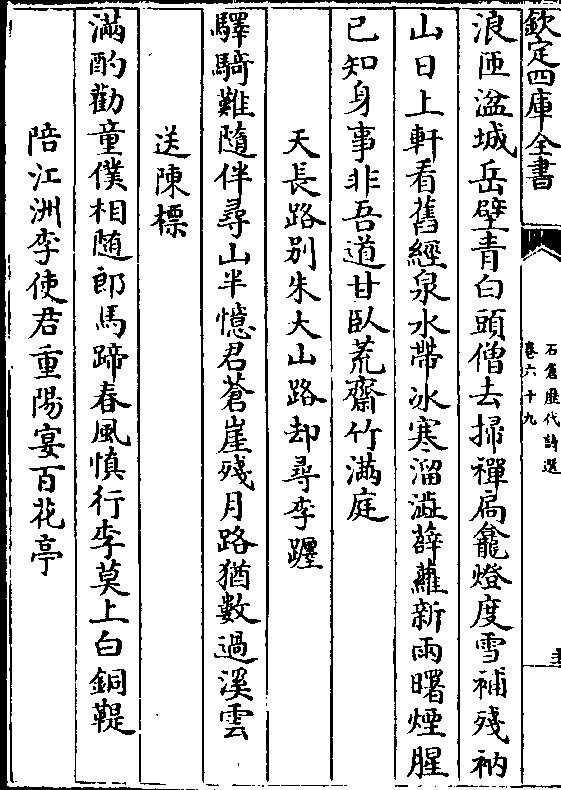 欽定四庫全書
石倉歷代詩選
卷六十九
浪匝湓城岳壁青白頭僧去掃禪扃龕燈度雪補殘衲
山日上軒看舊經泉水帶冰寒溜澁薜蘿新雨曙煙腥
已知身事非吾道甘臥荒齋竹滿庭
天長路別朱大山路却尋李躔
驛騎難隨伴尋山半憶君蒼崖殘月路猶數過溪雲
送陳標
滿酌勸童僕相随郎馬蹄春風慎行李莫上白銅鞮
陪江洲李使君重陽宴百花亭